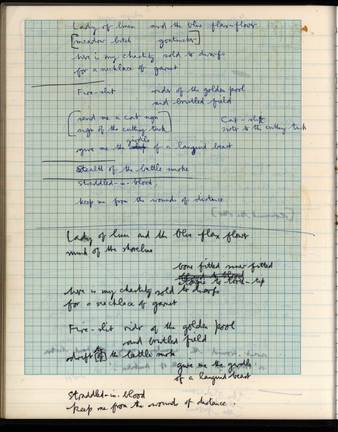 Lady of linen and the blue flax flower
[meadow bitch goatsucker]
here is my chastity sold to dwarfs
for a necklace of garnet
Fire-slit rider of the golden pool
and bristled field
[send me a cat
sign of the cutting tusk]
Cat-slit
rider to the cutting tusk
give me the girdle of a languid beast
Stealth of the battle smoke
Straddled-in-blood,
keep me from the wounds of distance
Lady of linen and the blue flax flower
mind of the shoreline
bone fitted
here is my chastity sold to dwarfs
for a necklace of garnet
Fire-slit rider of the golden pool
and bristled field
the battle smoke
give me the girdle
of a languid beast
Straddled-in-blood
keep me from the wound of distance.